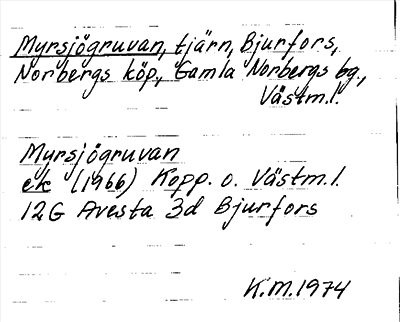 Myrsjögruvan, tjärn, Bjurfors,
Norbergs köp., Gamla Norbergs bg.,
Västm.l.
Myrsjögruvan
ek (1966) Kopp. o. Västm.l.
12G Avesta 3d Bjurfors
K.M.1974